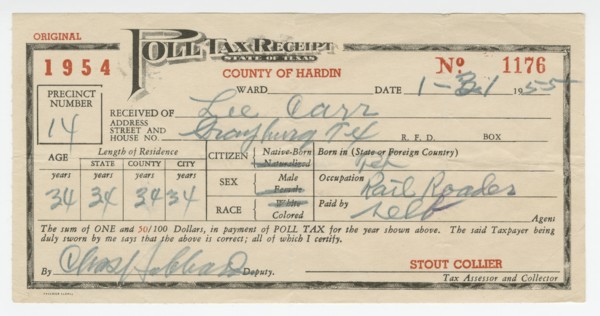 ORIGINAL
POLL TAX RECEIPT
STATE OF TEXAS
1954
COUNTY OF HARDIN
No 1176
WARD DATE 1-31 1955
PRECINCT NUMBER 14
RECEIVED OF Lee Carr
ADDRESS STREET AND HOUSE NO. Grayburg Tex R. F. D. BOX
AGE
Length of Residence
STATE COUNTY CITY
years years years years
34 34 34 34
CITIZEN Native-Born Naturalized
SEX Male Female
RACE White Colored
Born in (State or Foreign Country)
Tex
Occupation Rail Roader
Paid by self
Agent
The sum of ONE and 50/100 Dollars, in payment of POLL TAX for the year shown above. The said Taxpayer being
duly sworn by me says that the above is correct; all of which I certify.
By Deputy.
STOUT COLLIER
Tax Assessor and Collector